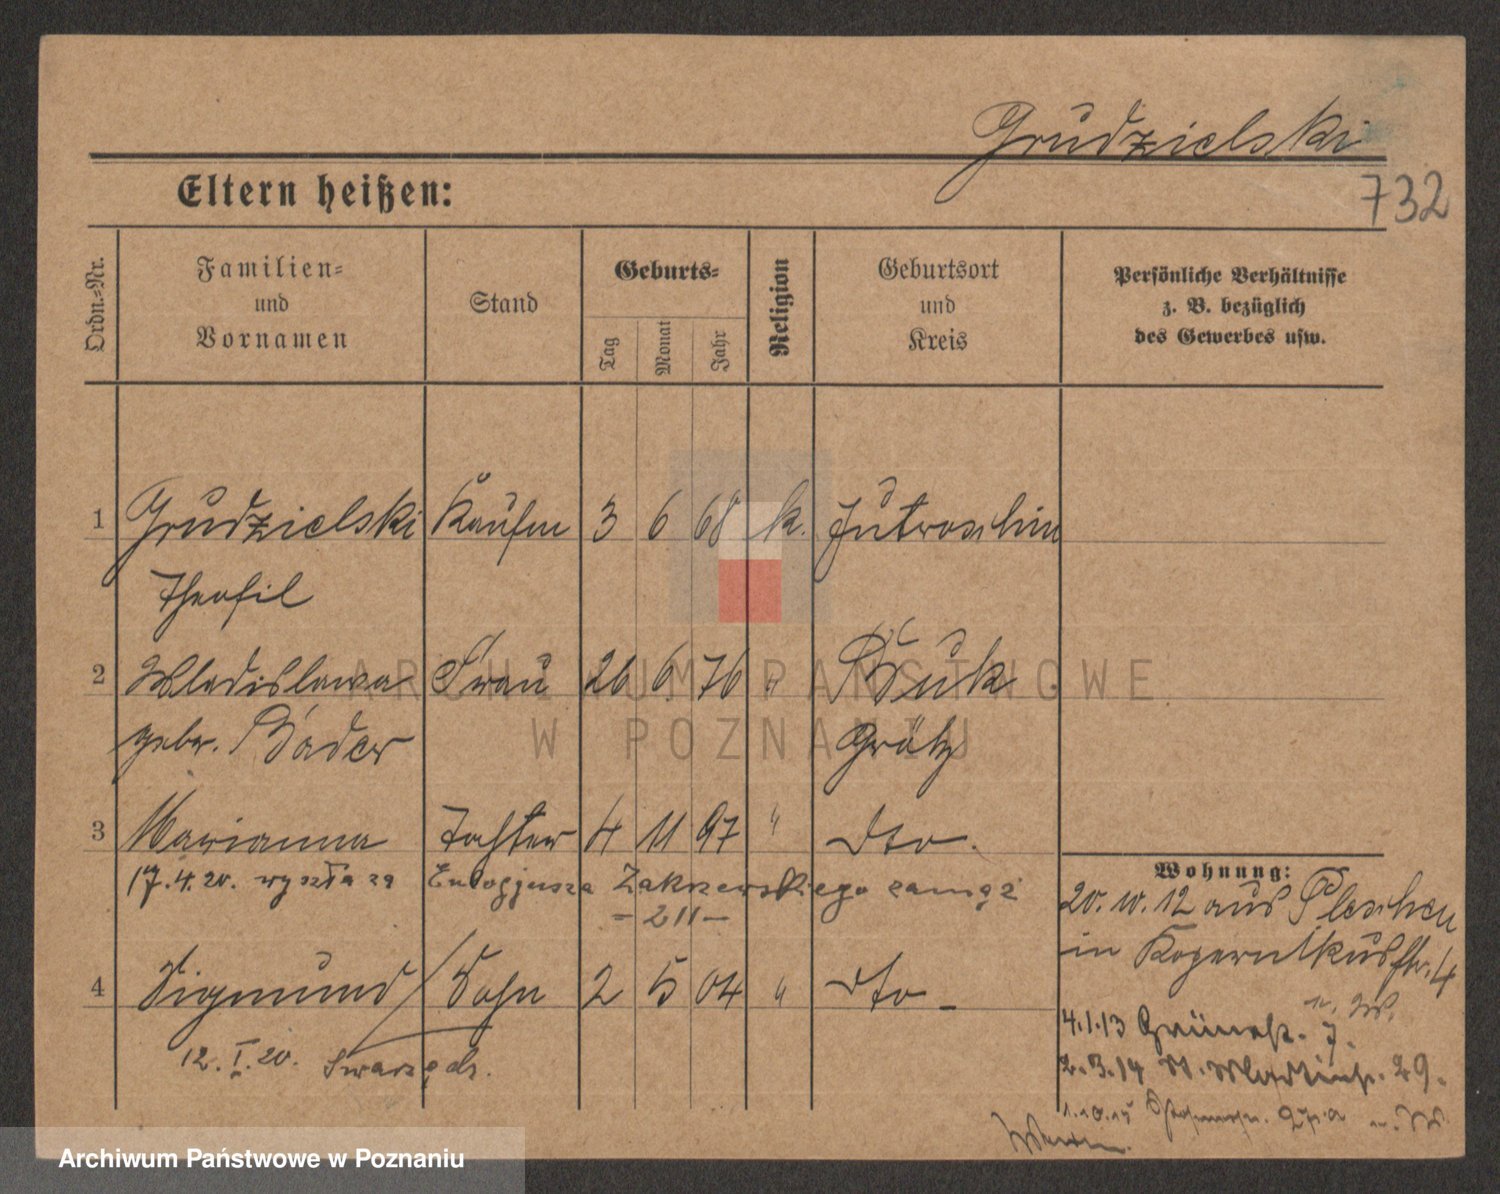 Grudzielski
732
Eltern heißen:
Ordn.-Nr.
Familien- und Vornamen
Stand
Geburts-
Tag
Monat
Jahr
Religion
Geburtsort und Kreis
Persönliche Verhältnisse
z. B. bezüglich
des Gewerbes usw.
1 Grudzielski Kaufm 3 6 68 k. Jutroschin
Theofil
2 Wladislawa Frau 26 6 76 " Buk
gebor. Bader Grätz
3 Marianna Tochter 4 11 97 " dto.
17.4.20. wyszła za Eulogjusza Zakrzewskiego zamąż
- 211 -
4 Sigmund Sohn 2 5 04 " dto -
12.I.20. Swarzędz.
Wohnung:
20.10.12 aus Pleschen
in Kopernikusstr. 4
4.1.13 Grünestr. 7.
2.3.14 St. Martinstr. 29.
1.10.15
ARCHIWUM PAŃSTWOWE
W POZNANIU
Archiwum Państwowe w Poznaniu